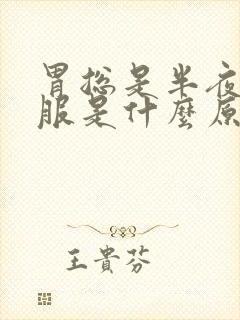 胃总是半夜
服是什麼原
王貴芬